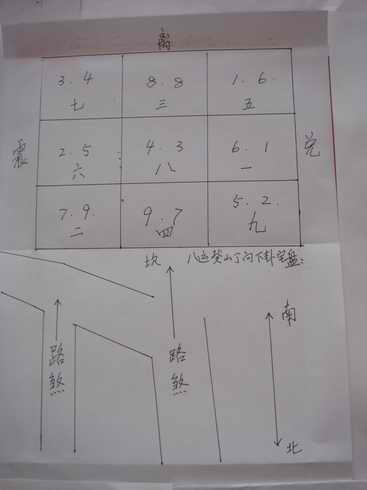 离
3.4 8.8 1.6
七 三 五
震 2.5 4.3 6.1 兑
六 八 一
7.9. 9.7 5.2.
二 四 九
坎 八运癸山丁向下卦宅盘:
南
路煞 路煞
北